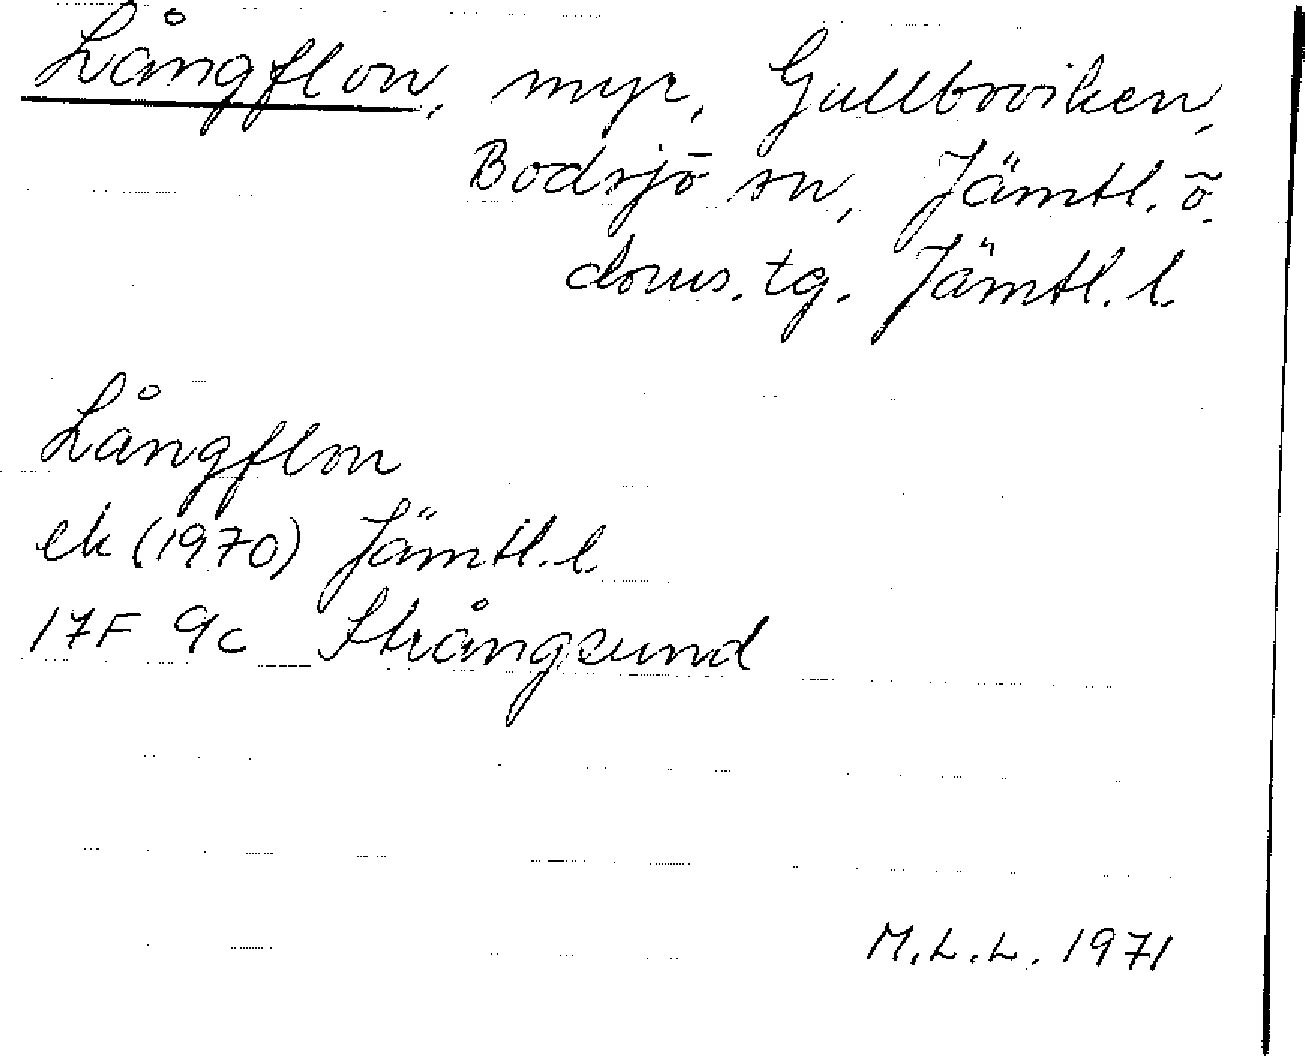 Långflon, myr, Gullboviken,
Bodsjö sn, Jämtl. ö.
doms. tg. Jämtl. l.
Långflon
ek (1970) Jämtl. l
17F 9c Strångsund
M.L.L. 1971